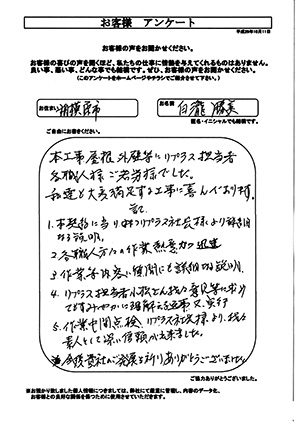 お客様 アンケート
平成29年10月11日
お客様の声をお聞かせください。
お客様の喜びの声を聞くほど、私たちの仕事に情熱を与えてくれるものはありません。
良い事、悪い事、どんな事でも結構です。ぜひ、お客様の声をお聞かせください。
(このアンケートをホームページやチラシでご紹介させて下さい。)
お住まい 相模原市
お名前 白瀧 勝美
匿名・イニシャルでも結構です。
ご自由にお書きください。
本工事屋根、外壁等にリプラス担当者
各職人様ご苦労様でした。
私達も大変満足する工事に喜んでおります。
記
1.本契約に当りリプラス社長様より詳細
なる説明。
2.各職人方々の作業熱意力迅速
3.作業等内容に質問にも詳細な説明。
4.リプラス担当者小松さん
ですみやかに理解え返事
5.作業中間点検、リプラス社長様より、
として深い信頼が出来ました。
今後貴社のご発展を祈りありがとうございました。
ご協力ありがとうございました。
※お預かり致しました個人情報につきましては、弊社にて厳重に管理し、内容のデータ化、
お客様との良好な関係を保つために使用させていただきます。